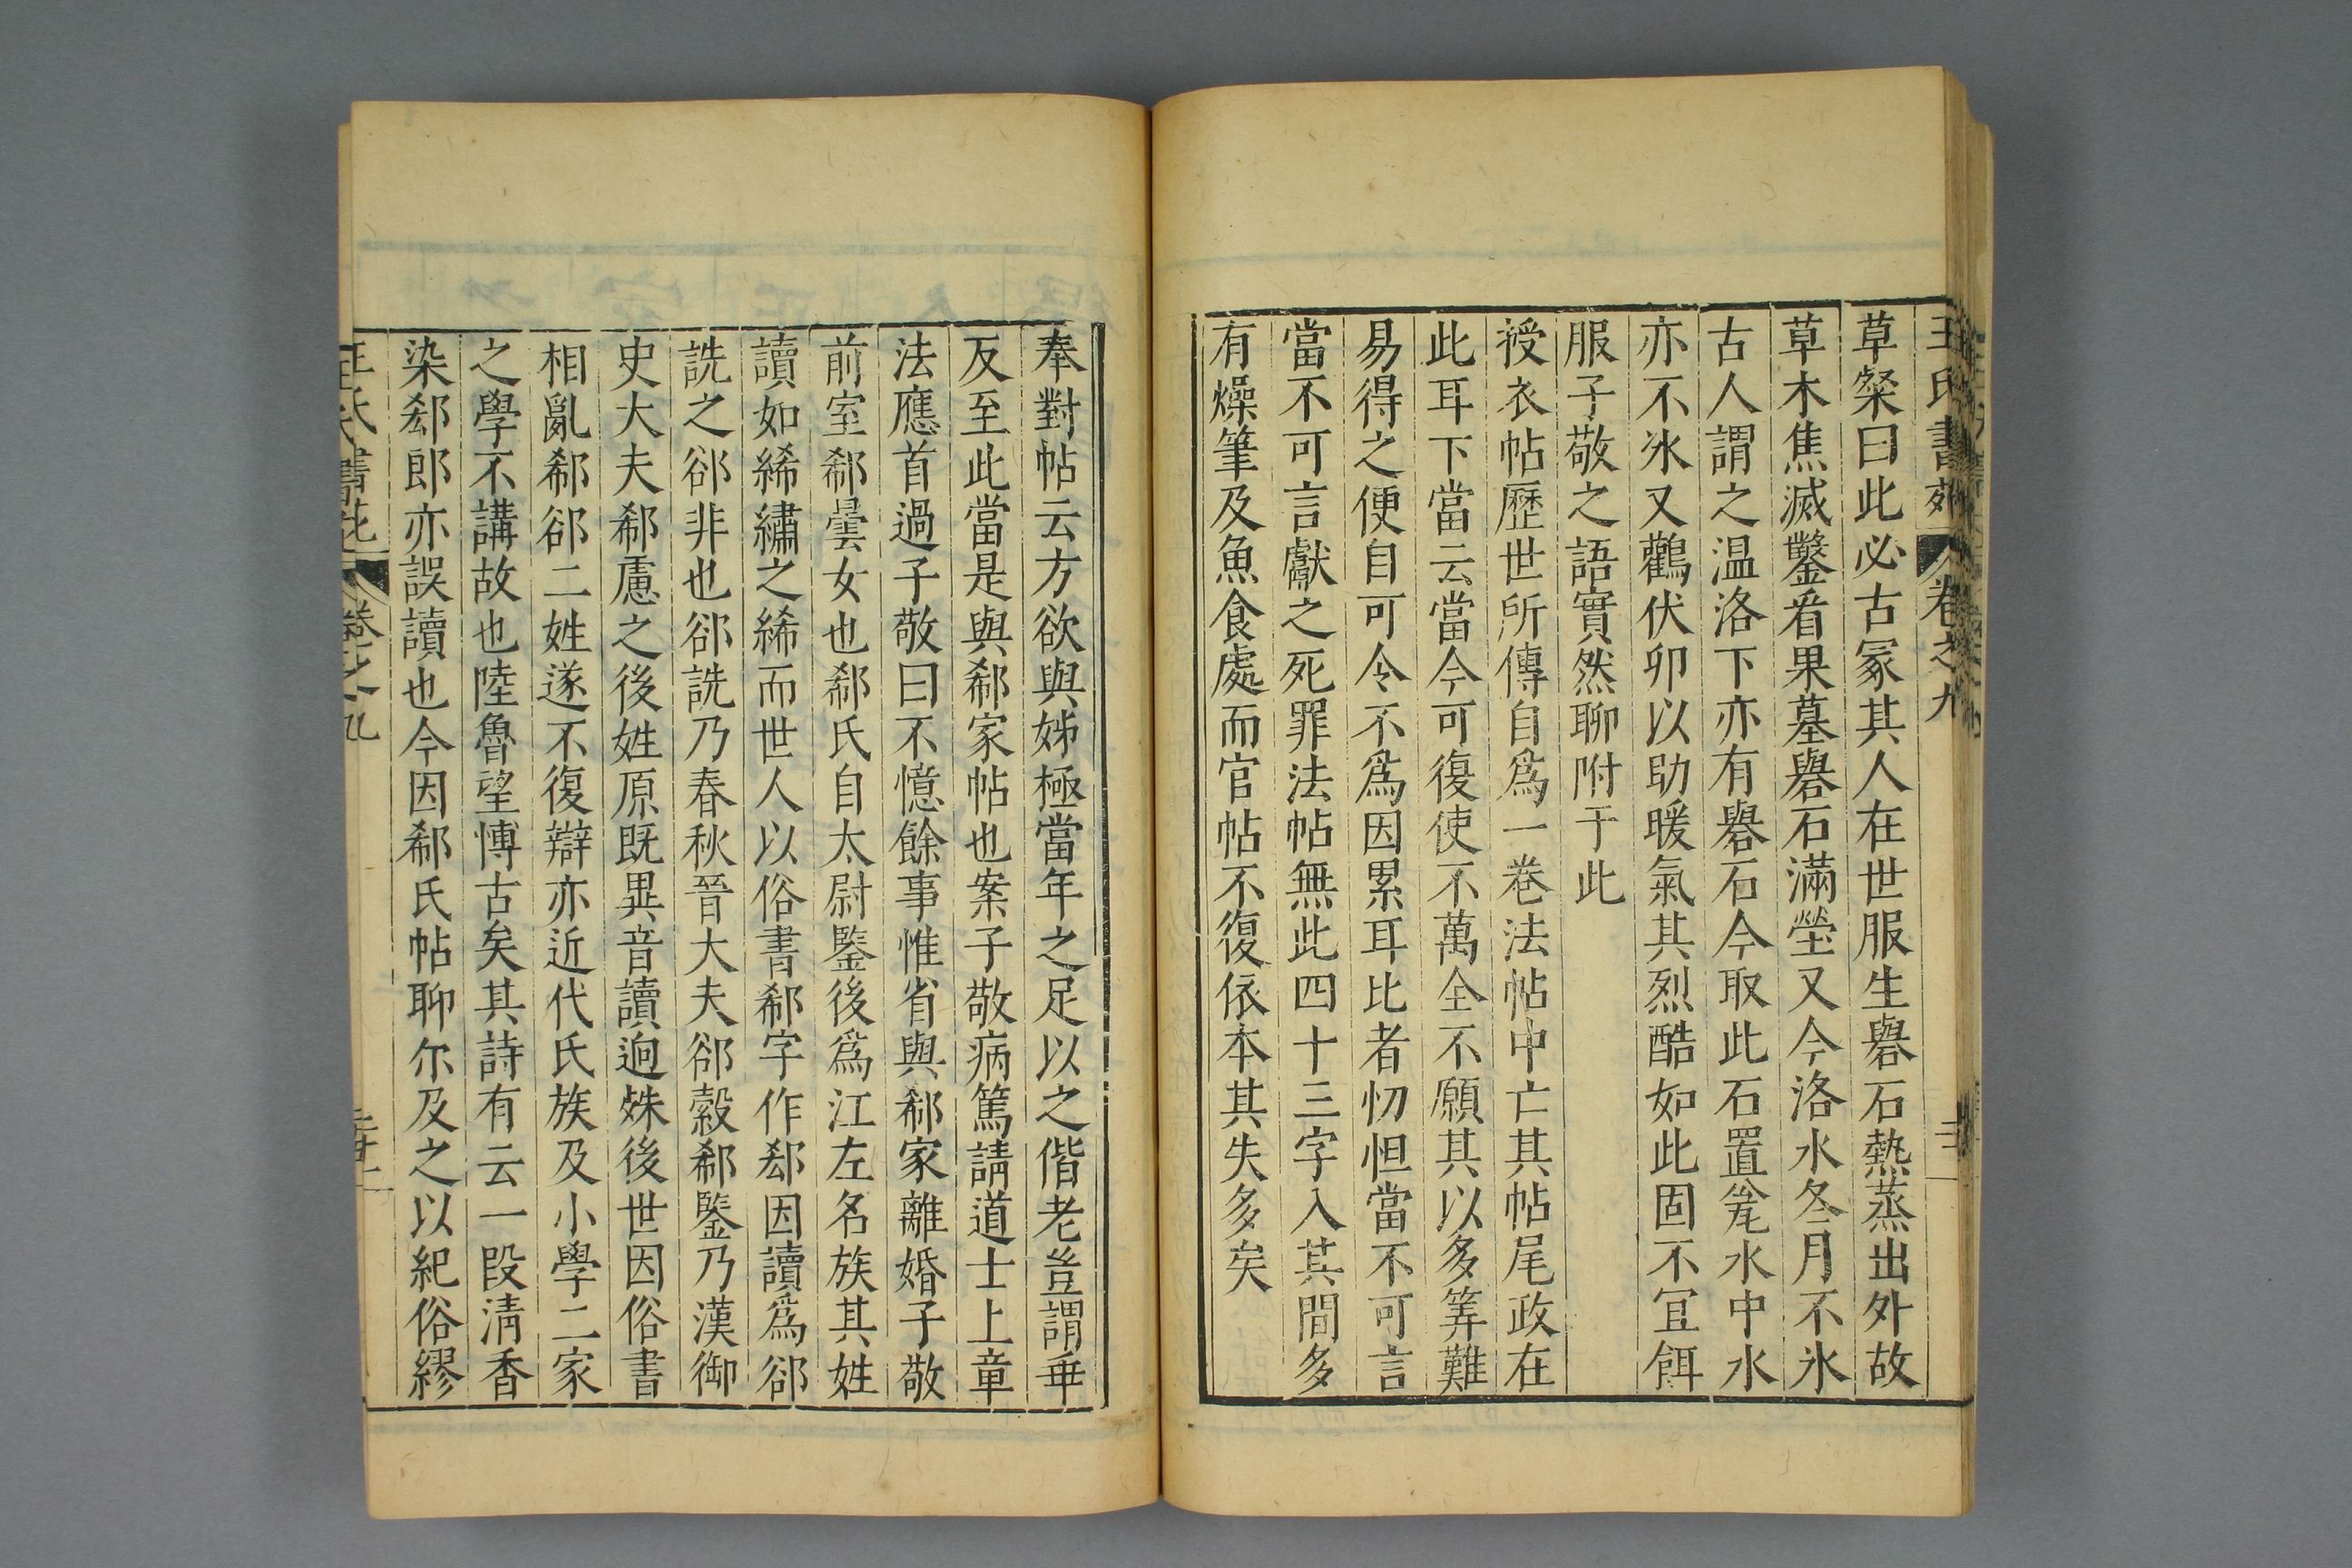 王氏書苑 卷之九
草粲曰此必古冢其人在世服生礜石熱蒸出外故
草木焦滅鑿看果墓礜石滿塋又今洛水冬月不氷
古人謂之温洛下亦有礜石今取此石置瓮水中水
亦不氷又鸛伏卵以助暖氣其烈酷如此固不宜餌
服子敬之語實然聊附于此
授衣帖歷世所傳自爲一卷法帖中亡其帖尾政在
此耳下當云當今可復使不萬全不願其以多筭難
易得之便自可令不爲因累耳比者忉怛當不可言
當不可言獻之死罪法帖無此四十三字入其間多
有燥筆及魚食處而官帖不復依本其失多矣
奉對帖云方欲與姊極當年之足以之偕老豈謂乖
反至此當是與郗家帖也案子敬病篤請道士上章
法應首過子敬曰不憶餘事惟省與郗家離婚子敬
前室郗曇女也郗氏自太尉鑒後爲江左名族其姓
讀如絺繡之絺而世人以俗書郗字作郄因讀爲郤
詵之郤非也郤詵乃春秋晉大夫郤縠郗鑒乃漢御
史大夫郗慮之後姓原既異音讀逈姝後世因俗書
相亂郗郤二姓遂不復辯亦近代氏族及小學二家
之學不講故也陸魯望博古矣其詩有云一段清香
染郄郎亦誤讀也今因郗氏帖聊尔及之以紀俗繆
王氏書苑 卷之九